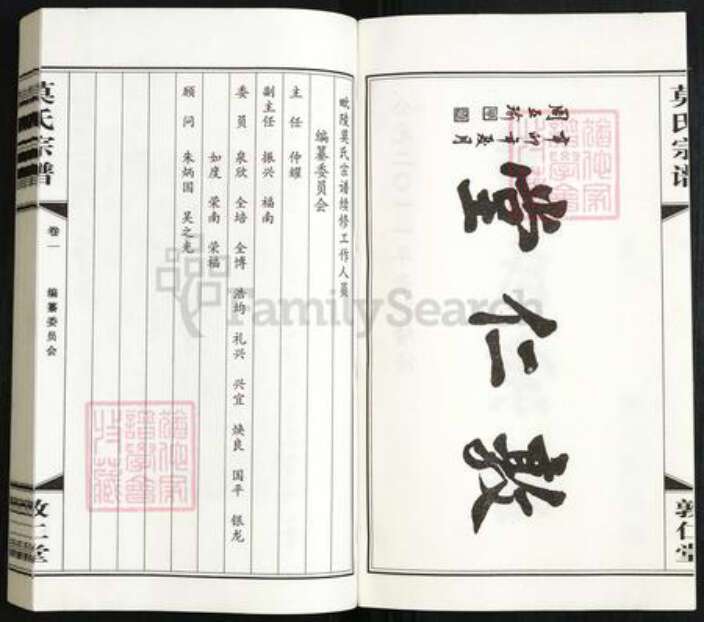 莫氏宗谱
敦仁堂
辛卯年夏月
敦仁堂
毗陵莫氏宗谱续修工作人员
编纂委员会
主任 仲耀
副主任 振兴 福南
委员 泉欣 全培 全博 浩均 礼兴 兴宜 焕良 国平 银龙
如度 荣南 荣福
顾问 朱炳国 吴之光
莫氏宗谱
卷一
编纂委员会
敦仁堂
FamilySearch